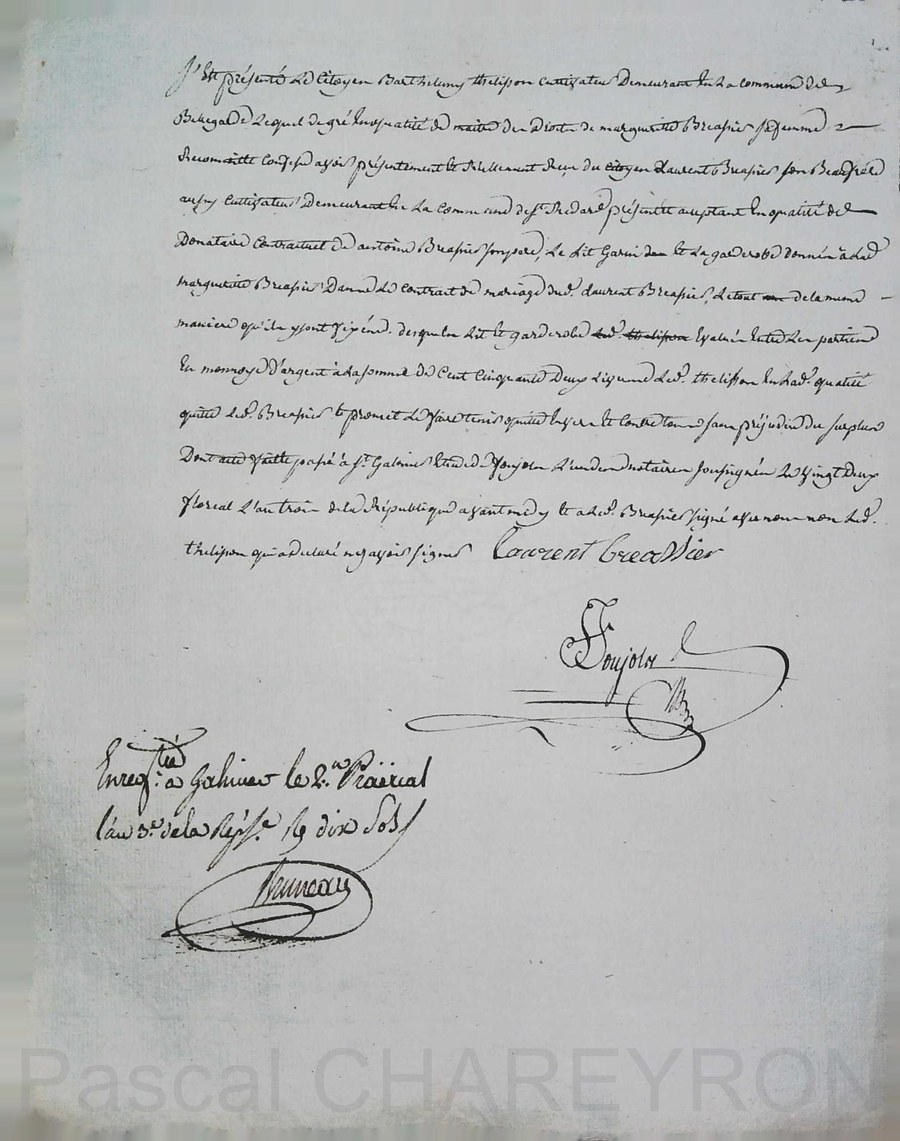 S'est présenté Le Citoyen Barthelemy thelisson Cultivateur Demeurant En La commune de
Bellegarde Lequel de gré En qualité de maitre des Droits de margueritte Breassier sa femme
Reconnaitte Confesse avoir présentement et Réellement Reçu du citoyen Laurent Breassier son Beaufrére
aussy Cultivateur Demeurant En La Commune de st. présent et aceptant En qualité de
Donataire Contractuel de antoine Breassier son pere, Le Lit Garni et La garderobe donnés à Lad.
margueritte Breassier Dans Le Contrat de mariage dud. Laurent Breassier, Le tout de la meme
maniere qu'ils y sont desquels Lit et garderobe Led. thelisson Evalués Entre Les parties
En monnoye D'argent à La somme de Cent Cinquante Deux Livres Led. thelisson En Lad. qualité
quitte Led. Breassier et promet Le faire tenir quitte Envers et Contre tous sans préjudice du surplus
Dont acte fait et passé à st. Galmier Etude de Ponjolas L'un des notaires soussignés Le vingt Deux
floreal L'an trois de la République avant midy et a Led. Breassier signé avec nous non Led.
thelisson qui a declaré ne savoir signer Laurent breassier
Ponjolas
Enregtré. a Galmier le 2. Prairial
l'an 3e. de la Repbe. R dix Sols
Bruneau
Pascal CHAREYRON